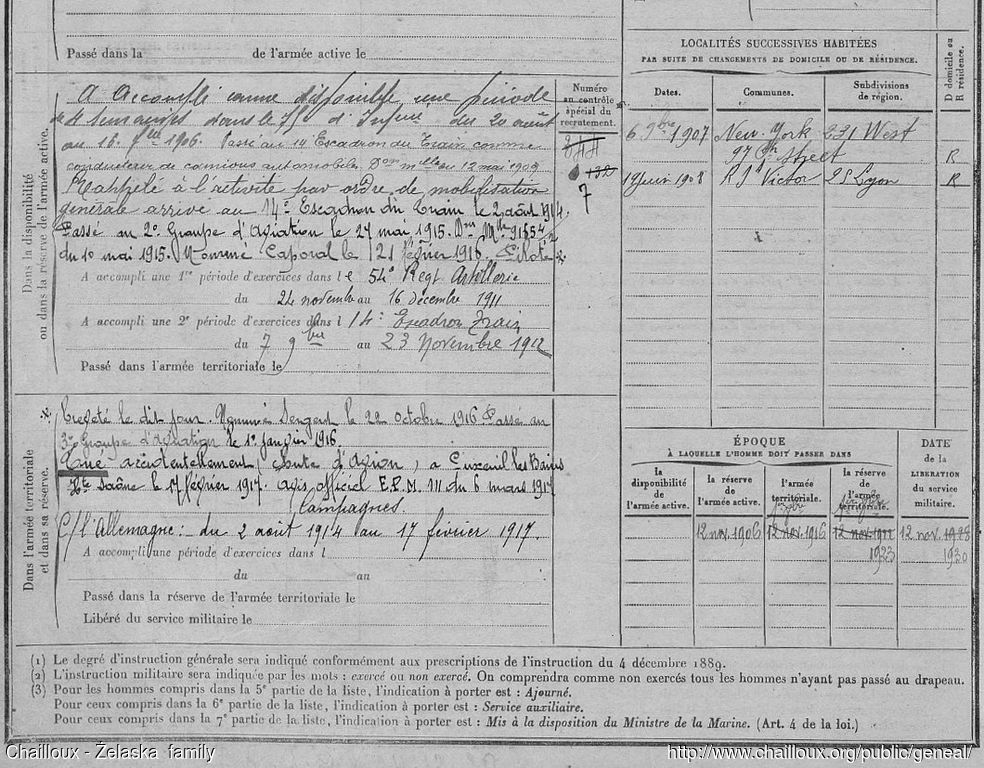 Passé dans la de l'armée active le
Dans la disponibilité
ou dans la réserve de l'armée active.
A accompli comme disponible, une période
de 4 semaines dans le d' du 20 août
au 16 1906. Passé au 14 Escadron du Train comme
conducteur de camions automobiles. 12 mai 1909
Rappelé à l'activité par ordre de mobilisation
générale arrivé au 14e Escadron du Train le 2 août 1914.
Passé au 2e Groupe d'Aviation le 27 mai 1915. Don Mlle 91554
du 10 mai 1915. Nommé Caporal le 21 février 1916. Pilote *
A accompli une 1re période d'exercices dans le 54e Regt Artillerie
du 24 novembre au 16 décembre 1911
A accompli une 2e période d'exercices dans l 14e Escadron Train
du 7 9bre au 23 Novembre 1912
Passé dans l'armée territoriale le
Numéro
au contrôle
spécial du
recrutement.
7
LOCALITÉS SUCCESSIVES HABITÉES
PAR SUITE DE CHANGEMENTS DE DOMICILE OU DE RÉSIDENCE.
D domicile ou
R résidence.
Dates. Communes. Subdivisions
de région.
6 9bre 1907 New-York 231 West
97th Street R
19 juin 1908 Victor Lyon R
Dans l'armée territoriale
et dans sa réserve.
* Breveté le dit jour. Nommé Sergent le 22 octobre 1916 Passé au
3e Groupe d'aviation le 1r janvier 1916.
Tué accidentellement (chute d'avion) à Luxeuil les Bains
Hte Saône le 17 février 1917. avis officiel du 6 mars 1917
Campagnes.
C/ l'Allemagne: du 2 août 1914 au 17 février 1917.
A accompli une période d'exercices dans l
du au
Passé dans la réserve de l'armée territoriale le
Libéré du service militaire le
ÉPOQUE
À LAQUELLE L'HOMME DOIT PASSER DANS
DATE
de la
LIBÉRATION
du service
militaire.
la
disponibilité
de
l'armée active.
la réserve
de
l'armée active.
l'armée
territoriale.
la réserve
de
l'armée
territoriale.
12 nov. 1906 12 nov. 1916 12 nov. 1922 12 nov. 1928
1923 1930
(1) Le degré d'instruction générale sera indiqué conformément aux prescriptions de l'instruction du 4 décembre 1889.
(2) L'instruction militaire sera indiquée par les mots : exercé ou non exercé. On comprendra comme non exercés tous les hommes n'ayant pas passé au drapeau.
(3) Pour les hommes compris dans la 5e partie de la liste, l'indication à porter est : Ajourné.
Pour ceux compris dans la 6e partie de la liste, l'indication à porter est : Service auxiliaire.
Pour ceux compris dans la 7e partie de la liste, l'indication à porter est : Mis à la disposition du Ministre de la Marine. (Art. 4 de la loi.)
Chailloux - Żelaska family http://www.chailloux.org/public/geneal/